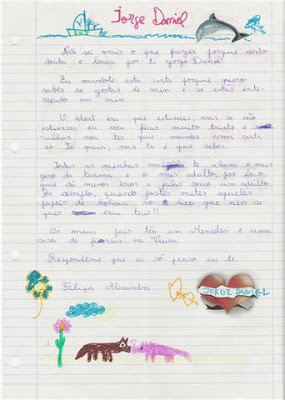 Jorge Daniel
Não sei mais o que fazer porque ando
doida e louca por ti Jorge Daniel!
Eu mandote esta carta porque quero
saber se gostas de mim e se estás inte-
reçado em mim.
O ideal era que estivesses, mas se não
estiveres eu vou ficar muito triste e
vou ter que mandar uma carta
ao Tó quim, mas tu é que sabes.
Todas as minhas te acham o mais
giro da turma e o mais adulto, por és o
que dá menos erros e falas como um adulto.
Por exemplo, quando fostes meter aqueles
papeis de bolicau no lixo que nem se
quer eram teus!!
Os meus pais têm um Mercedes e uma
casa de férias na
Respondême que eu só penso em ti.
Filipa Alexandra
JORGE DANIEL